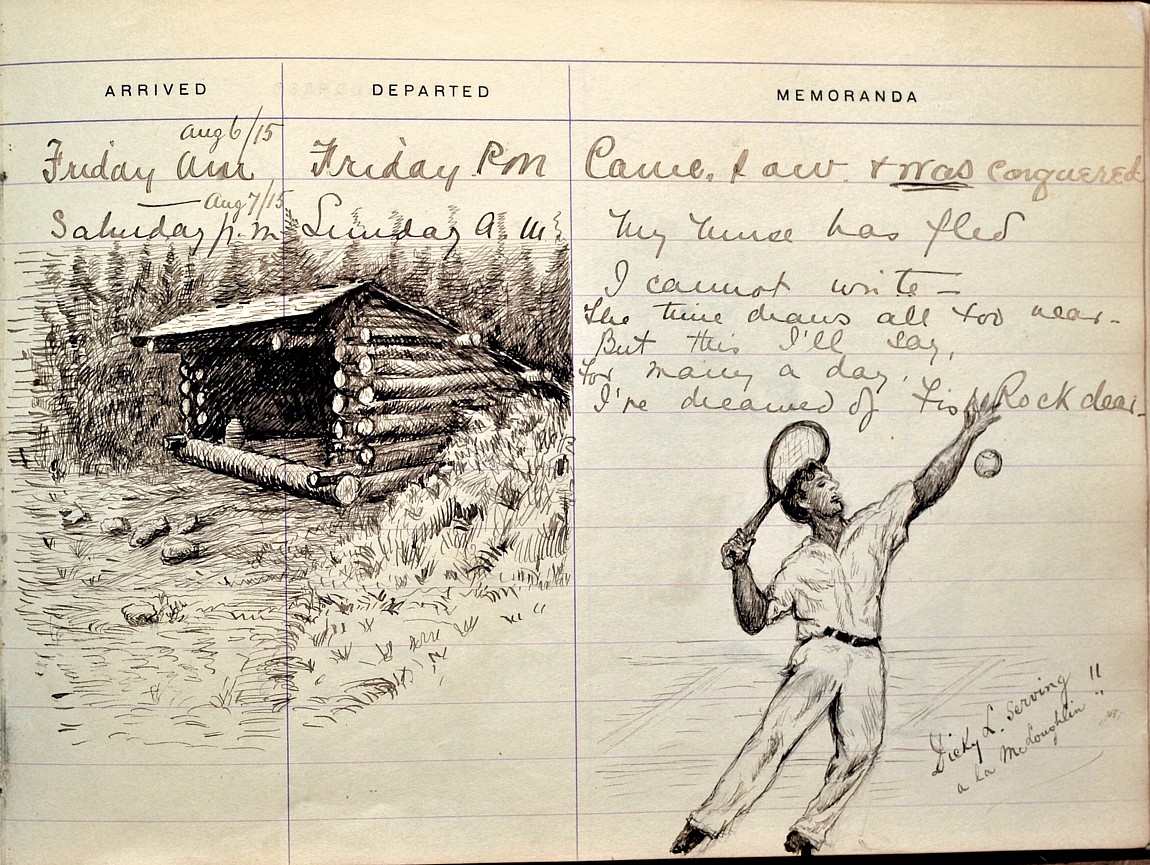 ARRIVED DEPARTED MEMORANDA
Aug 6/15
Friday Am Friday P.M Came, Saw & was conquered
Aug 7/15
Saturday p.m Sunday A.M.
My Muse has fled
I cannot write —
The time draws all too near.
But this I'll say,
For many a day,
I've dreamed of Rock dear.
Dicky L. Serving !!
a la McLoughlin "